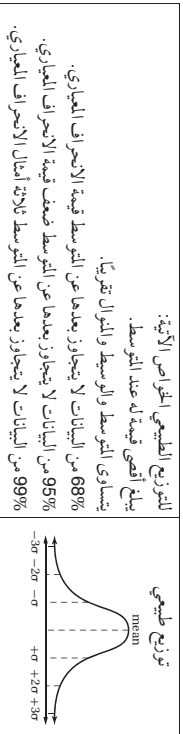 للتوزيع الطبيعي الخواص الآتية:
يبلغ أقصى قيمة له عند المتوسط.
يتساوى المتوسط والوسيط والمنوال تقريبًا.
68% من البيانات لا يتجاوز بعدها عن المتوسط قيمة الانحراف المعياري.
95% من البيانات لا يتجاوز بعدها عن المتوسط ضعف قيمة الانحراف المعياري.
99% من البيانات لا يتجاوز بعدها عن المتوسط ثلاثة أمثال الانحراف المعياري.
توزيع طبيعي
mean
−3σ −2σ −σ +σ +2σ +3σ